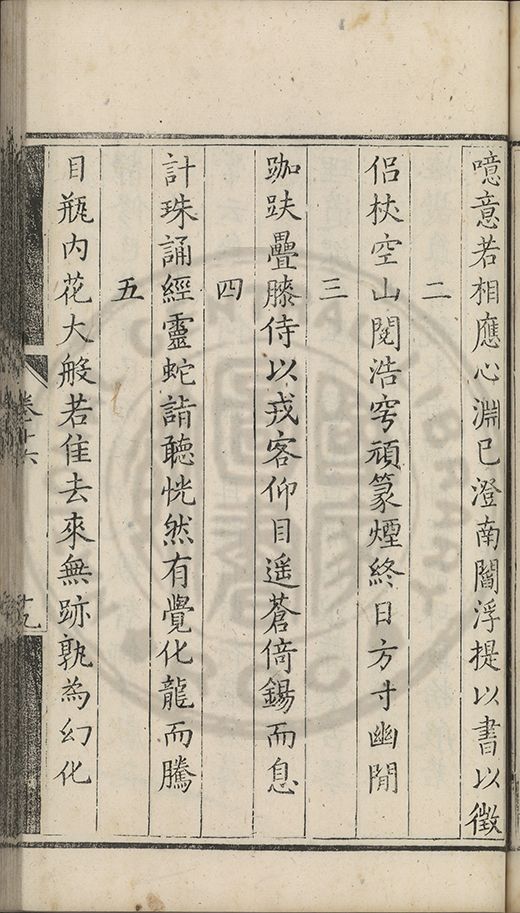 噫意若相應心淵已澄南閻浮提以書以徵
二
侶杖空山閱浩穹頑篆煙終日方寸幽閒
三
跏趺疊膝侍以戎客仰目遥蒼倚錫而息
四
計珠誦經靈蛇詣聽恍然有覺化龍而騰
五
目瓶內花大般若隹去來無跡孰為幻化
卷十六
十九